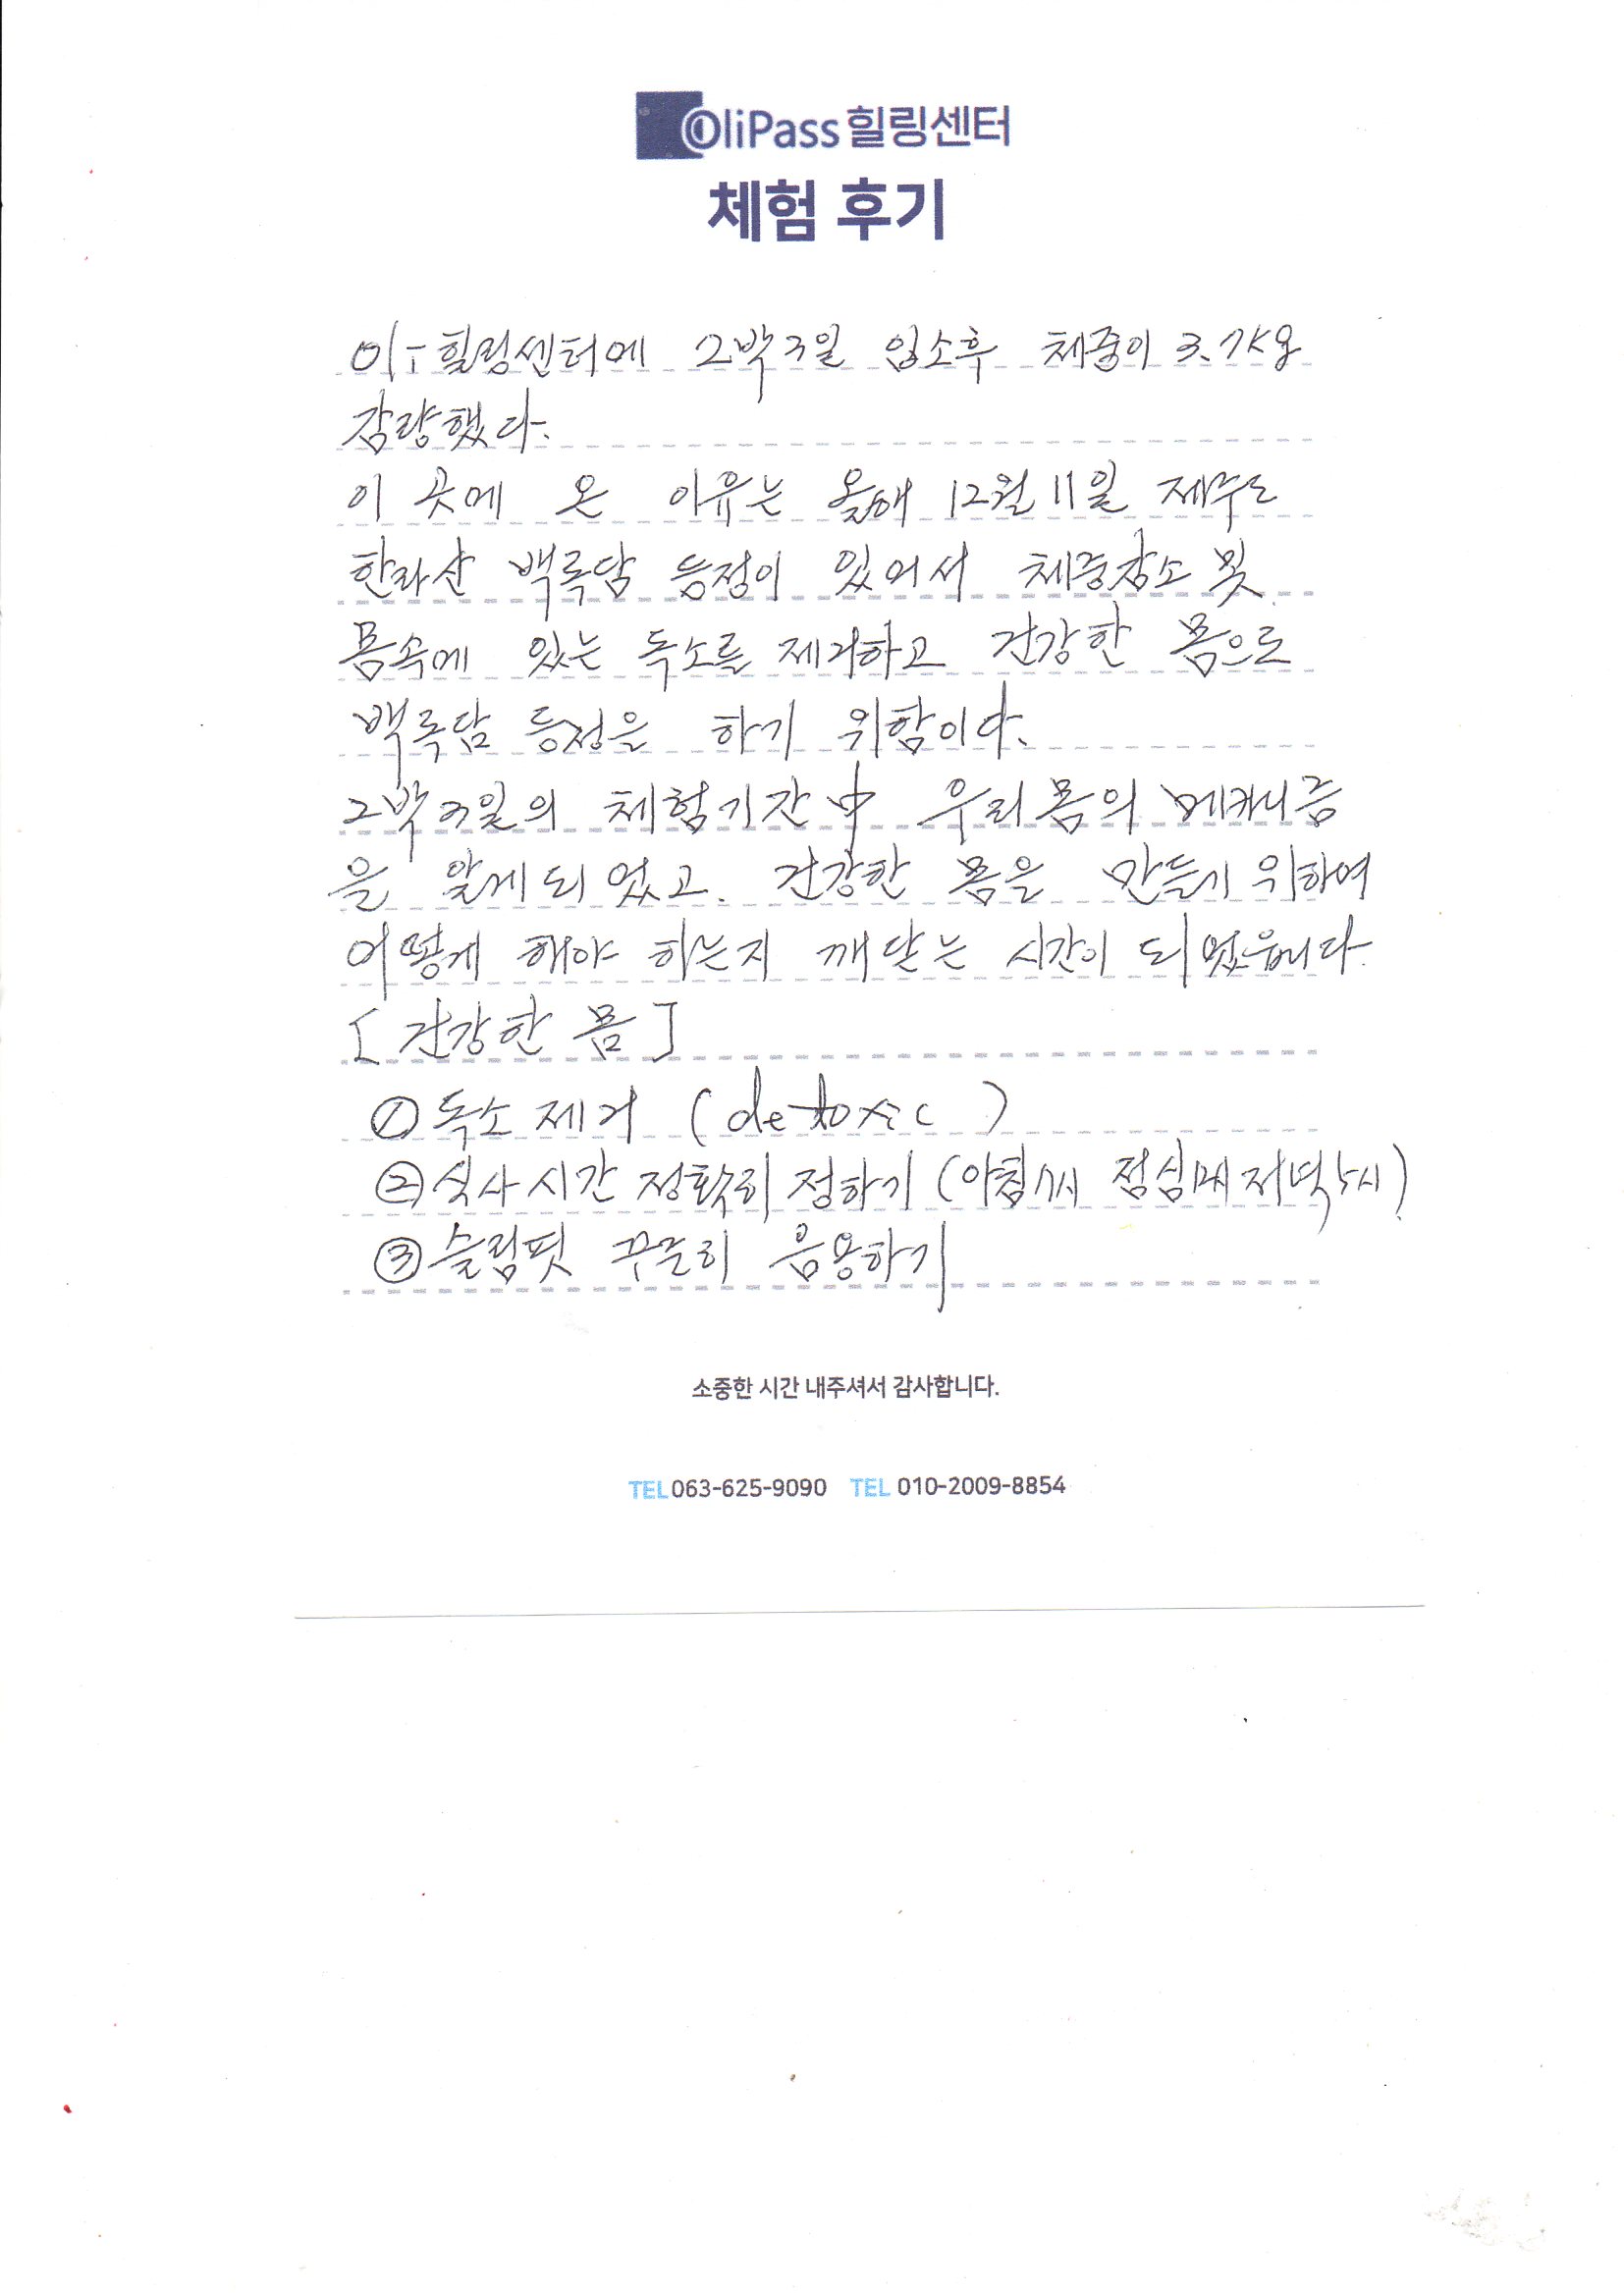 OliPass 힐링센터
체험 후기
힐링센터에 2박3일 입소후 체중이 3.7kg
감량했다.
이 곳에 온 이유는 올해 12월 11일 제주도
한라산 백록담 등정이 있어서 체중감소 및
몸속에 있는 독소를 제거하고 건강한 몸으로
백록담 등정을 하기 위함이다.
2박3일의 체험기간中 우리몸의 메카니즘
을 알게되었고. 건강한 몸을 만들기 위하여
어떻게 해야 하는지 깨닫는 시간이 되었읍니다.
[건강한 몸]
① 독소 제거 (detoxic)
② 식사시간 정확히 정하기 (아침7시 점심12시 저녁5시)
③ 슬림핏 꾸준히 음용하기
소중한 시간 내주셔서 감사합니다.
TEL 063-625-9090 TEL 010-2009-8854